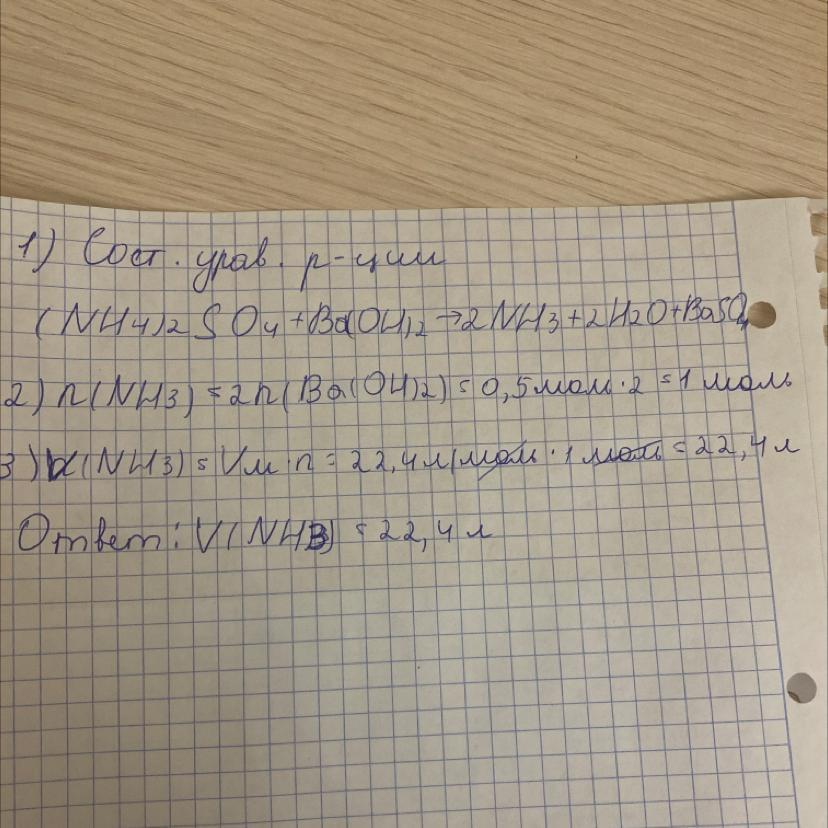 1) Сост. урав. р-ции
(NH4)2SO4+Ba(OH)2→2NH3+2H2O+BaSO4
2) n(NH3)=2n(Ba(OH)2)=0,5моль·2=1 моль
3) V(NH3)=Vм·n=22,4л/моль·1 моль=22,4л
Ответ: V(NH3)=22,4 л